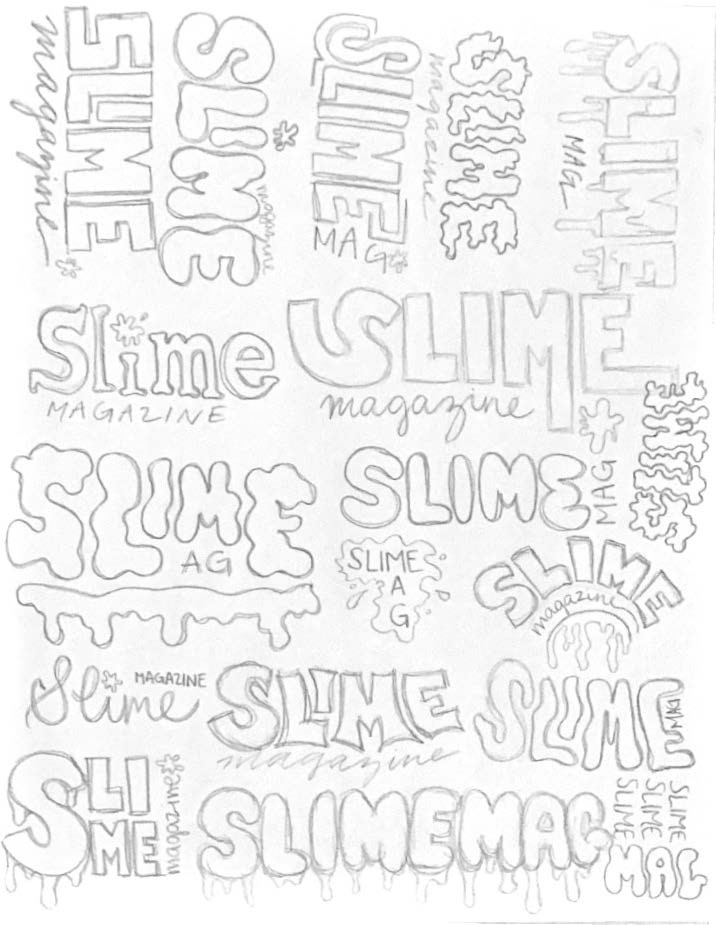 SLIME
magazine
SLIME
magazine
SLIME
MAG
SLIME
magazine
SLIME
MAG
Slime
MAGAZINE
SLIME
magazine
SLIME
SLIME
AG
SLIME
MAG
SLIME
A
G
SLIME
magazine
Slime
MAGAZINE
SLIME
magazine
SLIME
MAG
SLI
ME
magazine
SLIMEMAG
SLIME
SLIME
SLIME
MAG